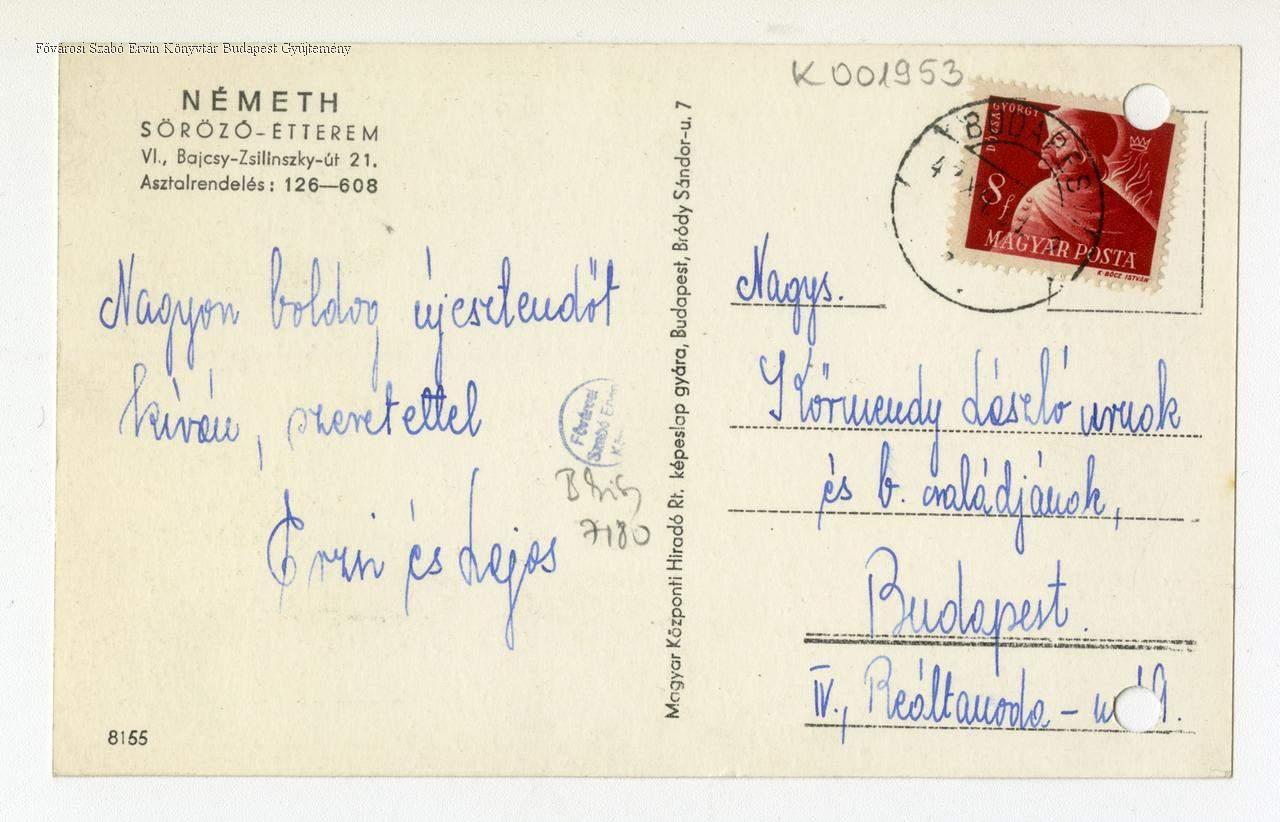 Fővárosi Szabó Ervin Könyvtár Budapest Gyűjtemény
K001953
NÉMETH
SÖRÖZŐ-ÉTTEREM
VI., Bajcsy-Zsilinszky-út 21.
Asztalrendelés: 126—608
Nagyon boldog újesztendőt
kíván, szeretettel
Erzsi és Lajos
8155
Fővárosi
Szabó Ervin
7180
Magyar Központi Hiradó Rt. képeslap gyára, Budapest, Bródy Sándor-u. 7
DÓZSA GYÖRGY
8f
MAGYAR POSTA
K-BÖCZ ISTVÁN
BUDAPES
Nagys.
Körmendy László urnak
és b. családjának,
Budapest.
IV., Reáltanoda-u